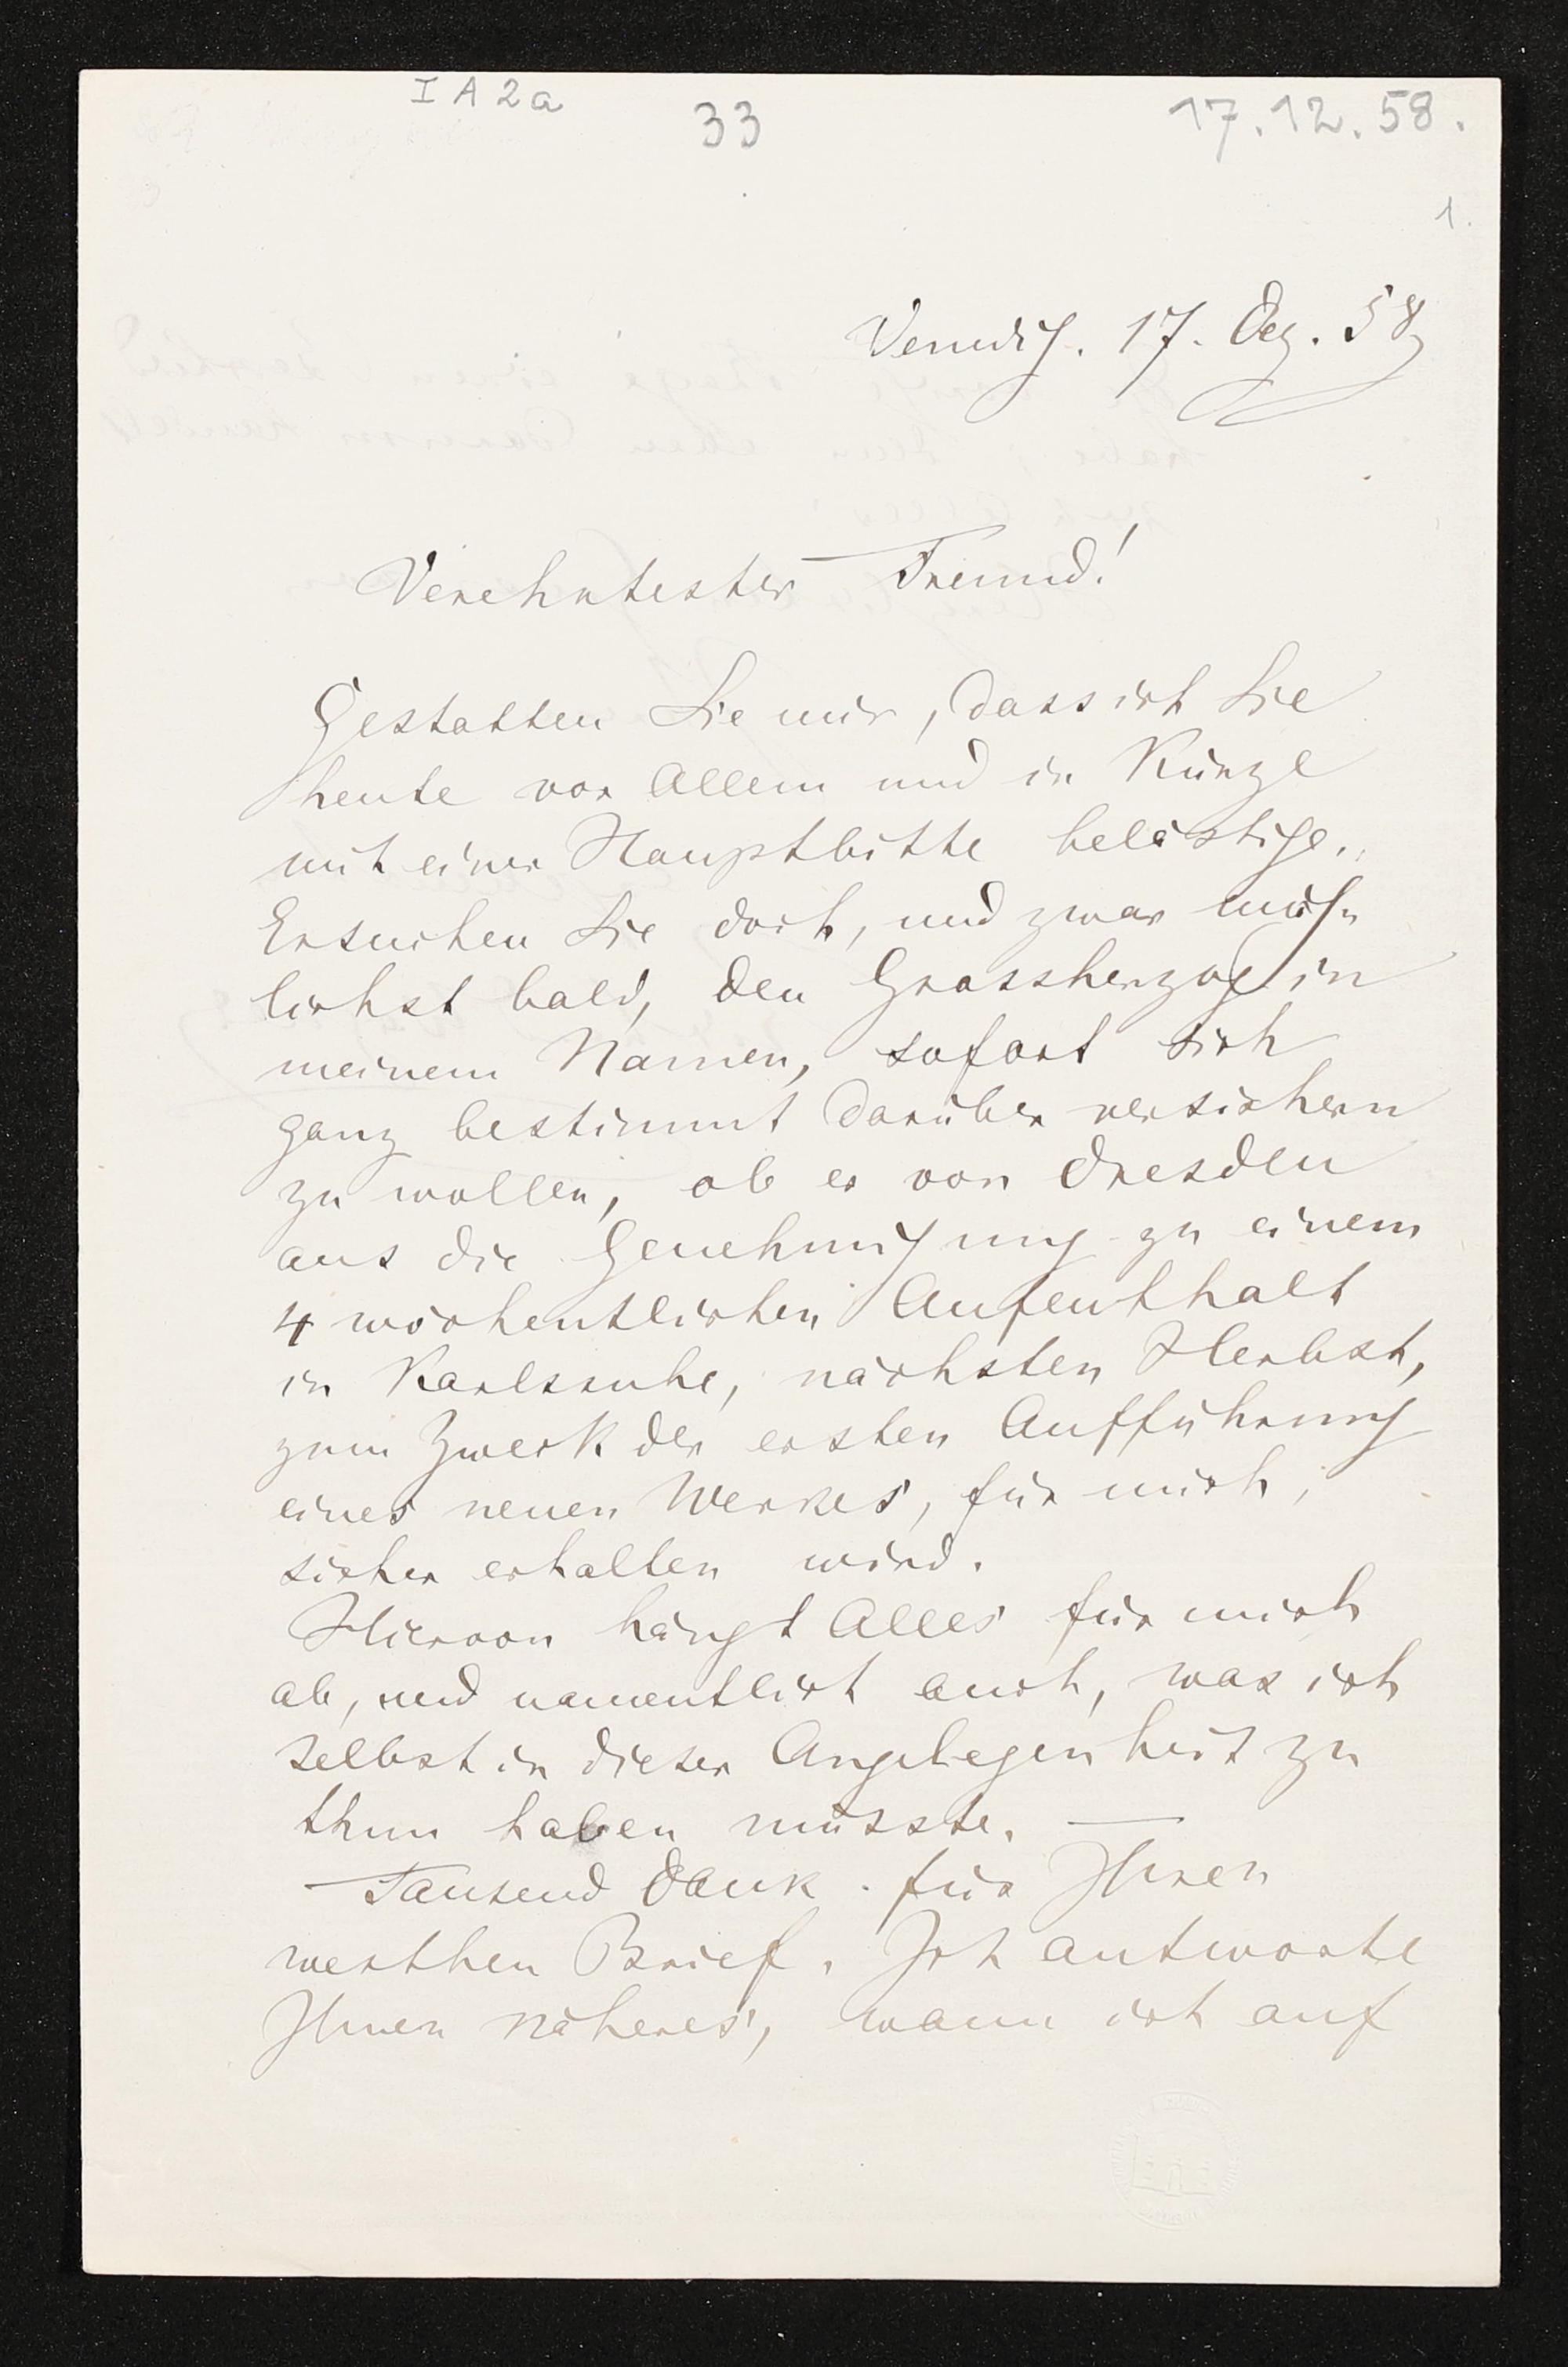 I A 2 a
33
17.12.58.
1.
Venedig. 17. Dez. 58
Verehrtester Freund!
Gestatten Sie mir, dass ich Sie
heute vor Allem und in Kürze
mit einer Hauptbitte belästige.
Ersuchen Sie doch, und zwar mög-
lichst bald, den Grossherzog in
meinem Namen, sofort sich
ganz bestimmt darüber versichern
zu wollen, ob er von Dresden
aus die Genehmigung zu einem
4 wöchentlichen Aufenthalt
in Karlsruhe, nächsten Herbst,
zum Zweck der ersten Aufführung
eines neuen Werkes, für mich,
sicher erhalten wird.
Hiervon hängt Alles für mich
ab, und namentlich auch, was ich
selbst in dieser Angelegenheit zu
thun haben müsste. —
Tausend Dank für Ihren
werthen Brief. Ich antworte
Ihnen näheres, wann ich auf